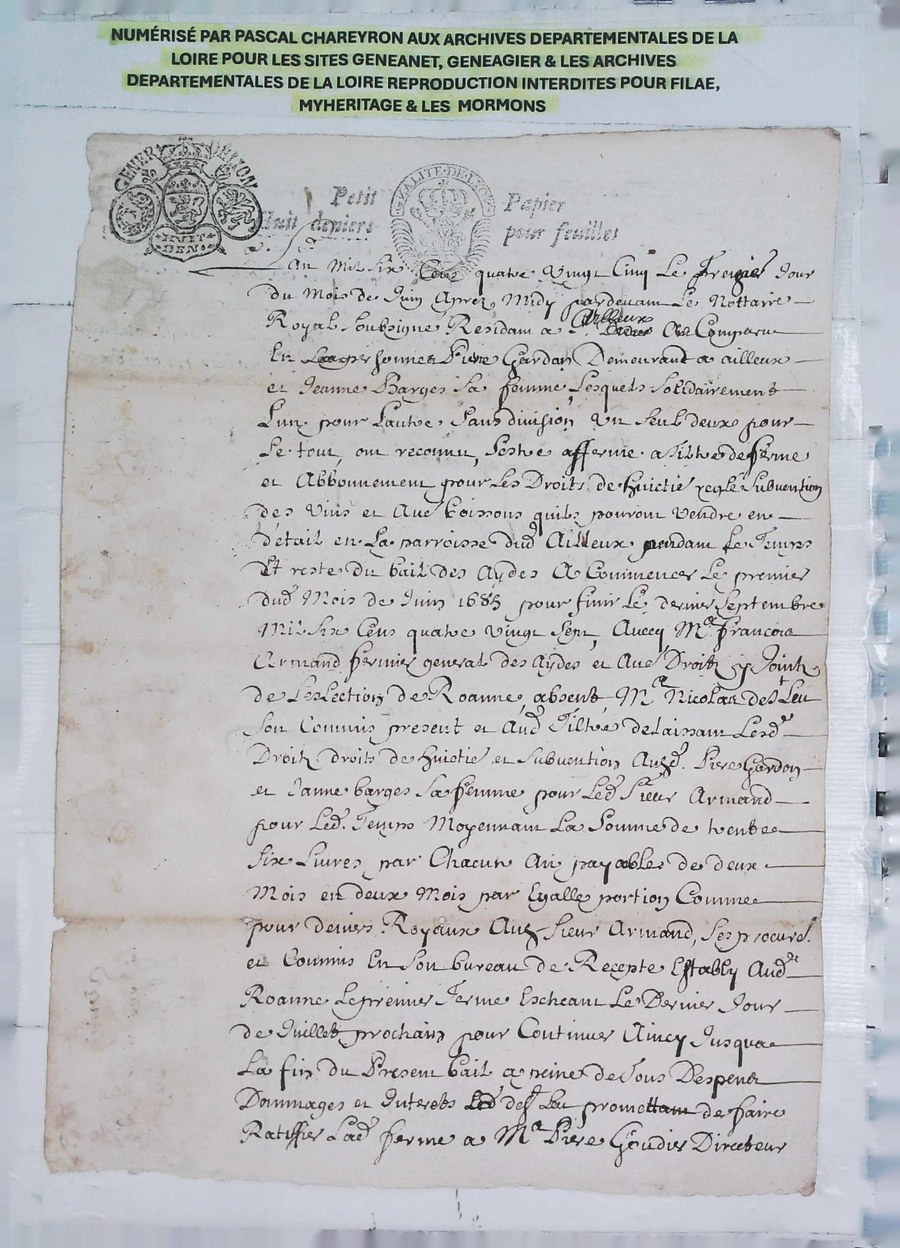 NUMÉRISÉ PAR PASCAL CHAREYRON AUX ARCHIVES DEPARTEMENTALES DE LA
LOIRE POUR LES SITES GENEANET, GENEAGIER & LES ARCHIVES
DEPARTEMENTALES DE LA LOIRE REPRODUCTION INTERDITES POUR FILAE,
MYHERITAGE & LES MORMONS
GENER LYON
HVIT DEN
GEALITE DE LYON
Petit Papier
Huit deniers pour feuilles
An Mil six Cens quatre vingt Cinq Le Jour
du Mois de Juin Apres Midy pardevant Le Nottaire
Royal soubsigne Residant a St Ailleux Comparu
En personnes Piere Gardon Demeurant a ailleux
et Jeanne Barges sa femme, Lesquels solidairement
L'un pour Lautre sans division, un seul deux pour
Le tout, ont reconnu, Destre afferme a tiltre de ferme
et Abbonnement pour Les Droits de huictie Subvention
des vins et Aue boissons quils pouront vendre en
detail en La parroisse dud Ailleux pendant Le Temps
Et reste du bail des Aydes A Commencer Le premier
dud Mois de Juin 1685 pour finir Le dernier Septembre
Mil six Cens quatre vingt sept, Avecq Me Francois
Armand fermier general des Aydes et Aue Droits y Joints
de Leslection de Roanne, absent, Me Nicolas de St Leu
son Commis present et Aud Tiltre delaissant Lesd
Droits droits de huictie et subvention Ausd. Piere Gardon
et Janne barges sa femme pour Led sieur Armand
pour Led. Temps Moyennant La somme de trente
six Livres par Chacun An payables de deux
Mois en deux Mois par Egalle portion Comme
pour deniers Royaux Aud sieur Armand, ses procures
et Commis En son bureau de Recepte Estably Aud
Roanne Le premier Terme Escheant Le Dernier Jour
de Juillet prochain pour Continuer Aincy Jusqua
La fin du Present bail a peine de tous Despens
Dommages et Interets Led de St Leu promettant de faire
Ratiffier Lad ferme a Me Piere Goudier Directeur